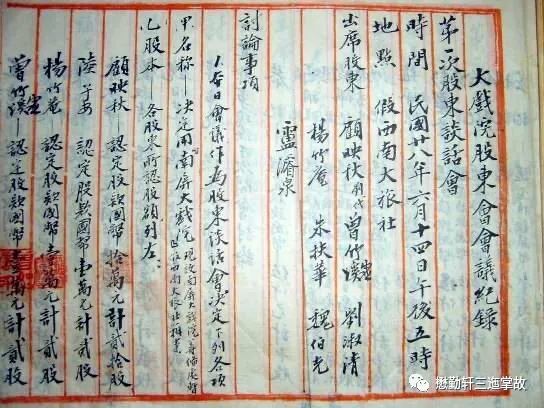 大戲院股東會會議紀錄
第一次股東談話會
時間 民國廿八年六月十四日午後五時
地點 假西南大旅社
出席股東 顧映秋 劉淑清
楊竹庵 朱扶華 魏伯
盧濬泉
討論事項
1.本日會議作為股東談話會決定下列各項
甲名稱——決定用南屏大戲院
乙股本——各股東所認股額列左：
顧映秋 認定股款國幣拾萬元計貳拾股
陸子安 認定股款國幣壹萬元計貳股
楊竹庵 認定股款國幣壹萬元計貳股
曾竹 認定股款國幣壹萬元計貳股
懋勤轩三迤掌故